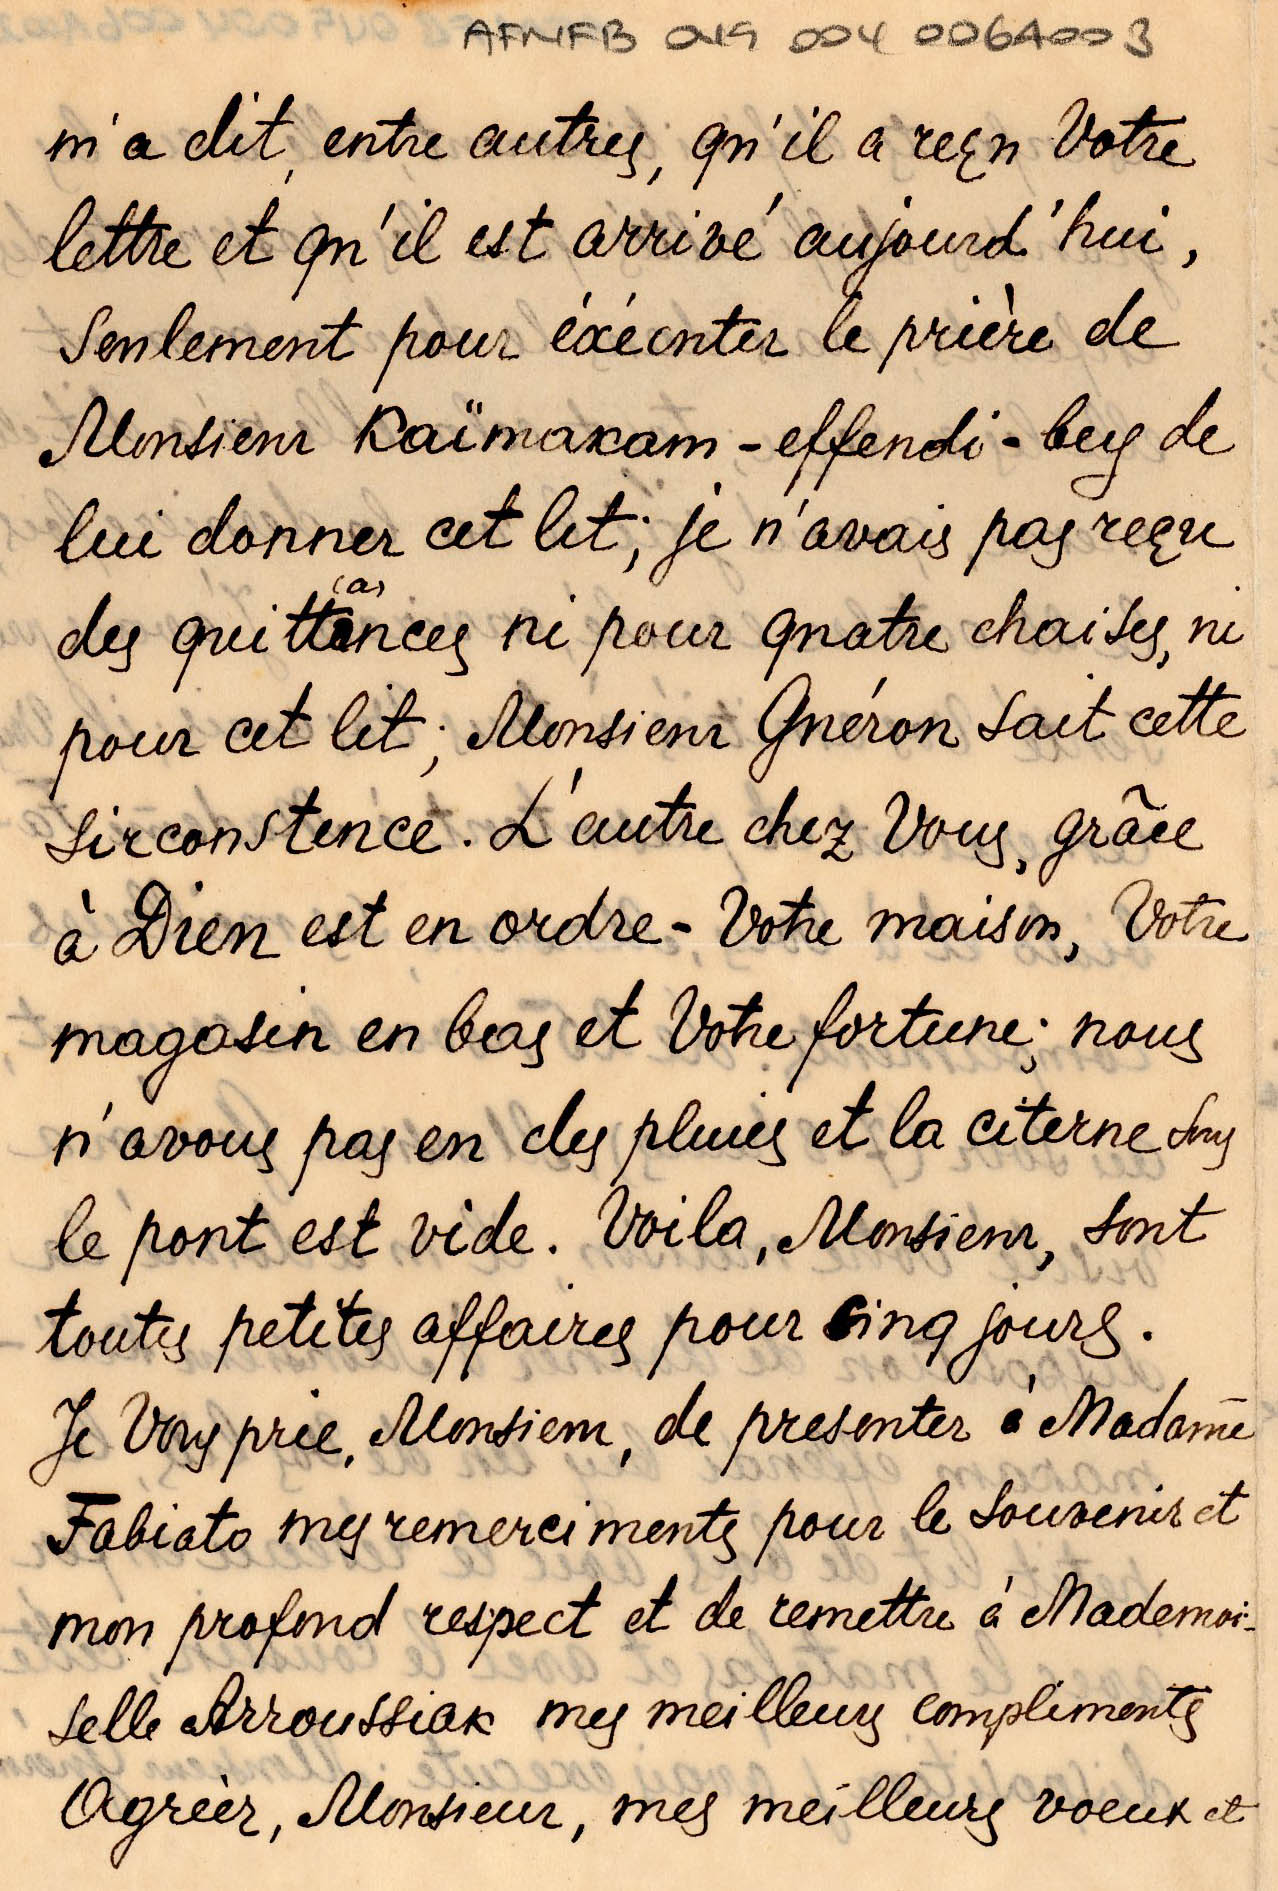 AFNFB 019 004 0064003
m'a dit, entre autres, qu'il a reçu Votre
lettre et qu'il est arrivé aujourd'hui,
seulement pour éxécuter le prière de
Monsieur Kaïmakam - effendi - bey de
lui donner cet lit; je n'avais pas reçu
des quittances (a) ni pour quatre chaises, ni
pour cet lit; Monsieur Guéron sait cette
sirconstence. L'autre chez Vous, grâce
à Dieu est en ordre - Votre maison, Votre
magasin en bas et Votre fortune; nous
n'avons pas eu des pluies et la citerne sous
le pont est vide. Voila, Monsieur, sont
toutes petites affaires pour cinq jours.
Je Vous prie, Monsieur, de presenter à Madame
Fabiato mes remerciments pour le souvenir et
mon profond respect et de remettre à Mademoi-
selle Arroussiak mes meilleurs compliments
Agréèr, Monsieur, mes meilleurs voeux et